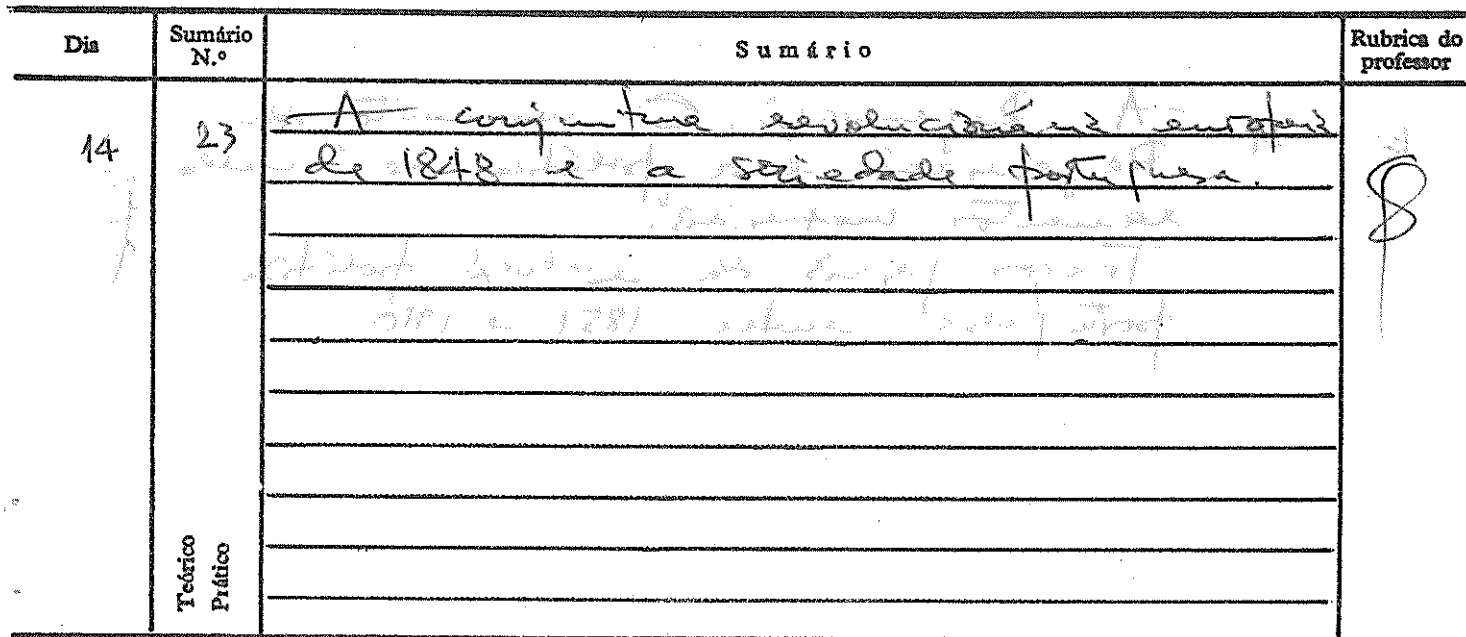 Dia
Sumário N.º
Sumário
Rubrica do professor
14
23
A conjuntura revolucionária europeia
de 1848 e a sociedade portuguesa.
Teórico
Prático